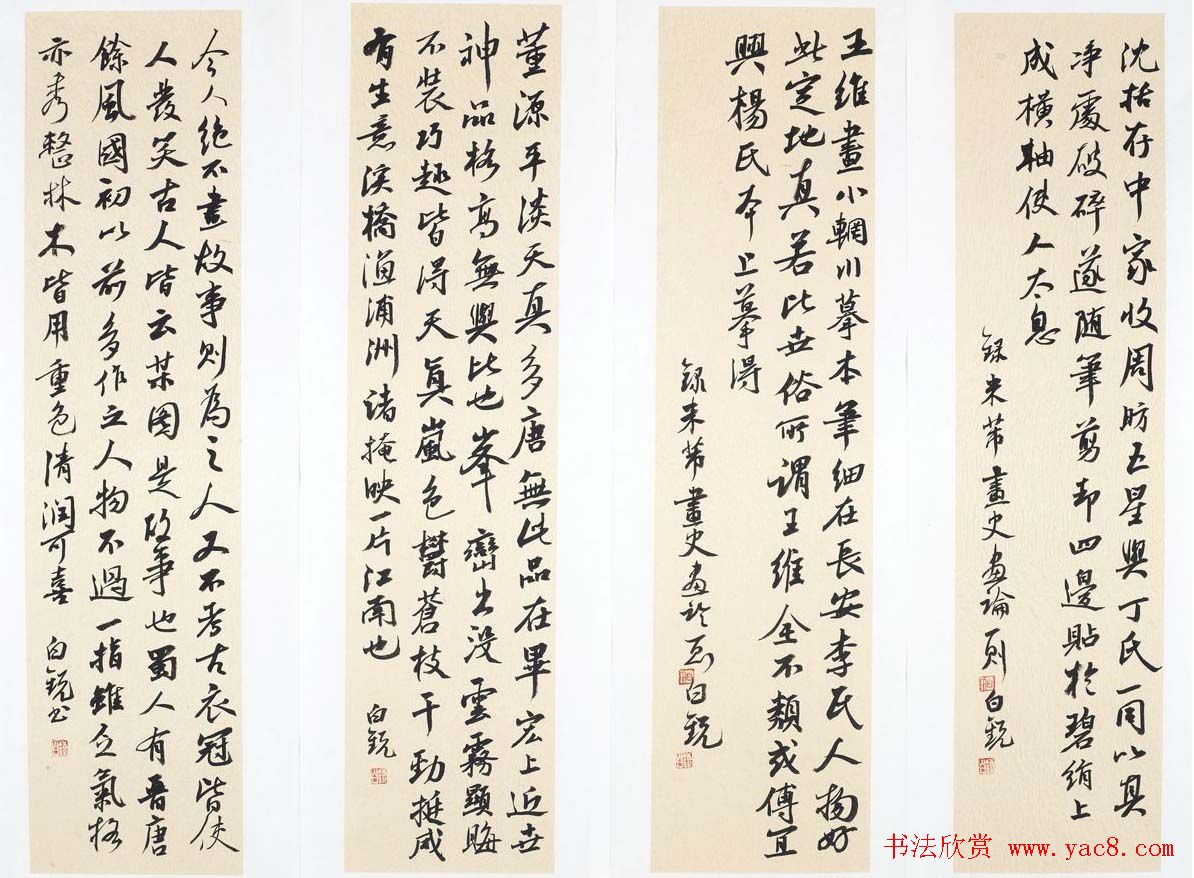 沈括存中家收周昉五星與丁氏一同以其
淨處破碎遂随筆剪却四邊貼於碧絹上
成橫軸使人太息
錄米芾畫史畫論一則 白銳
王維畫小輞川摹本筆細在長安李氏人物好
此定地真若比世俗所謂王維全不類或傅宜
興楊氏本上摹得
錄米芾畫史畫論 白銳
董源平淡天真多唐無此品在畢宏上近世
神品格高無與比也峯巒出没雲霧顯晦
不裝巧趣皆得天真嵐色鬱蒼枝干勁挺咸
有生意溪橋漁浦洲渚掩映一片江南也
白銳
今人絕不畫故事則為之人又不考古衣冠皆使
人發笑古人皆云某圖是故事也蜀人有晋唐
餘風國初以前多作之人物不過一指雖乏氣格
亦秀整林木皆用重色清润可喜
白銳书
书法欣赏 www.yac8.com